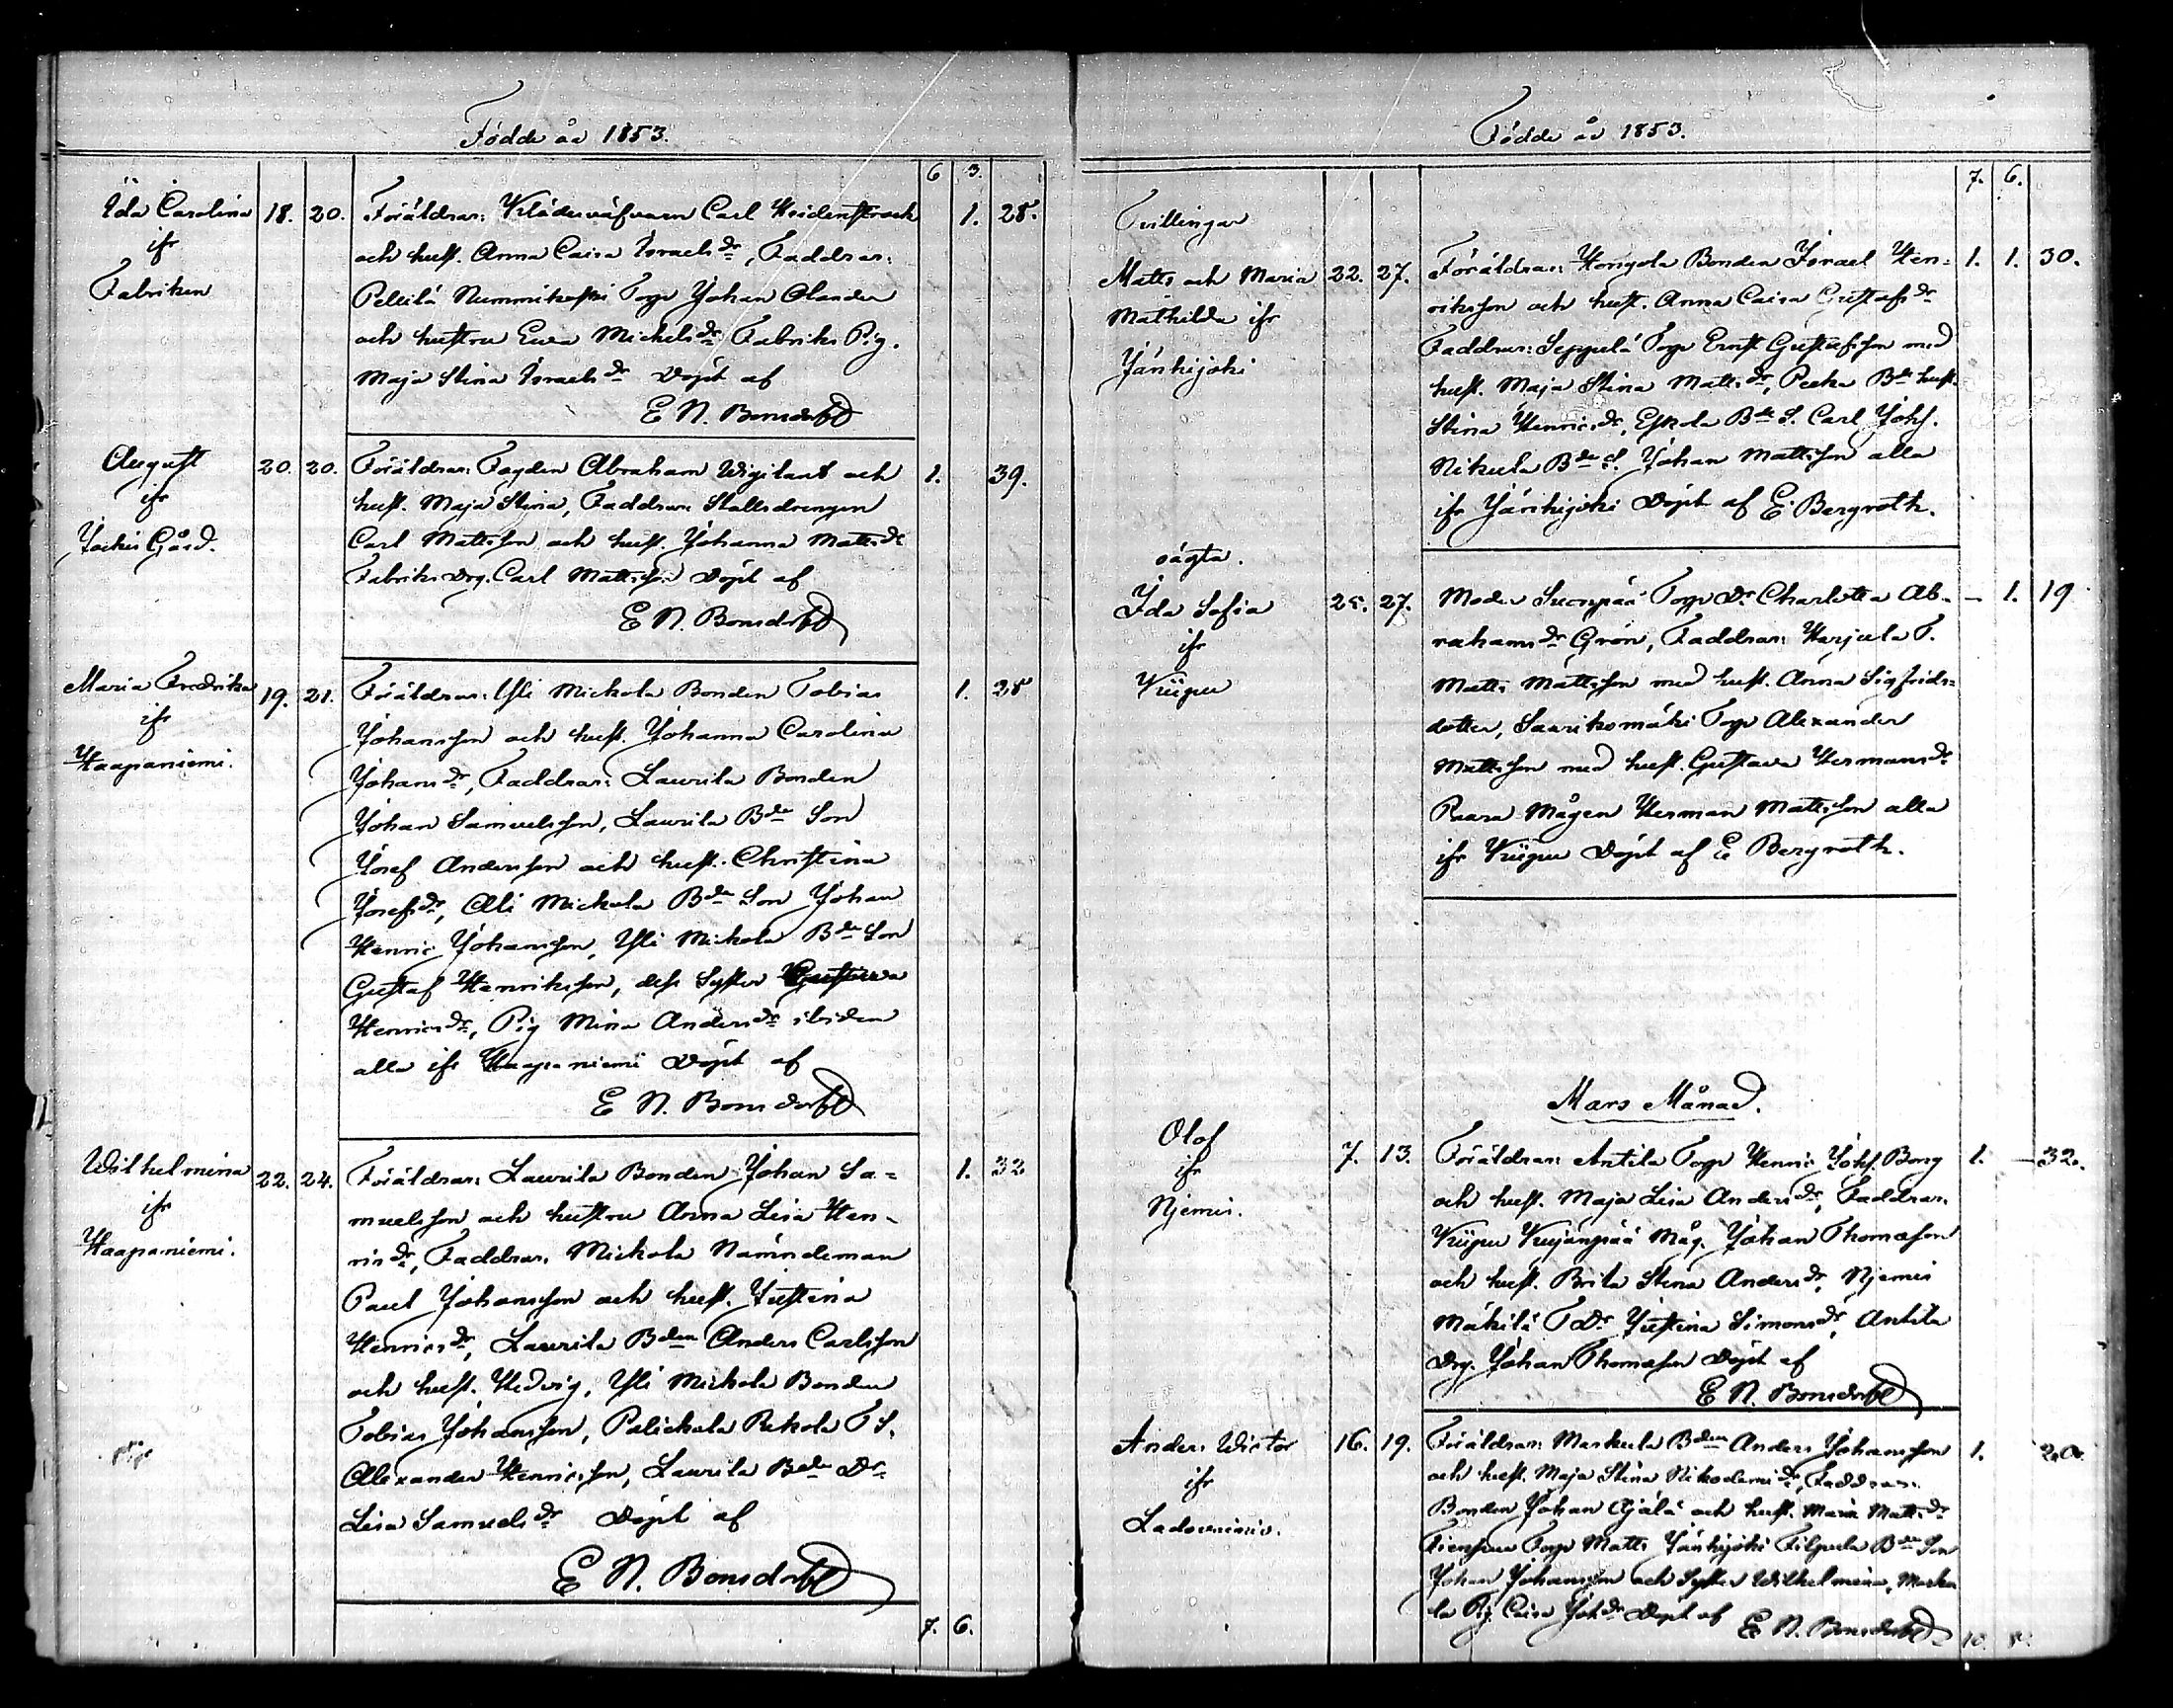 Födde år 1853.
6 3.
Ida Carolina 18. 20. Föräldrar: Klädesväfvaren Carl Heidenstrauch 1. 28.
ifr och hust. Anna Caisa Israelsdr, Faddrar:
Fabriken Peltilä Nummikoski Torp Johan Olander
och hustru Eva Michelsdr Fabriks Pig.
Maja Stina Israelsdr Döpt af
E N. Bonsdorff
August 20. 20. Föräldrar: Fogden Abraham Wigilant och 1. 39.
ifr hust. Maja Stina, Faddrar: Stallsdrengen
Jockis Gård. Carl Mattsson och hust. Johanna Mattsdr
Fabriks Drg. Carl Mattsson Döpt af
E N. Bonsdorff
Maria Fredrika 19. 21. Föräldrar: Yli Mickola Bonden Tobias 1. 28
ifr Johansson och hust. Johanna Carolina
Haapaniemi. Johansdr, Faddrar: Laurila Bonden
Johan Samuelsson, Laurila Bde Son
Josef Andersson och hust. Christina
Josefsdr, Ali Mickola Bde Son Johan
Henric Johansson, Yli Mickola Bde Son
Gustaf Henriksson, dess Syster Gustava
Henricsdr, Pig Mina Andersdr ibidem
alla ifr Haapaniemi Döpt af
E N. Bonsdorff
Wilhelmina 22. 24. Föräldrar: Laurila Bonden Johan Sa= 1. 32
ifr muelsson och hustru Anna Lisa Hen-
Haapaniemi. ricsdr, Faddrar: Mickola Nämndeman
Paul Johansson och hust. Justina
Henricsdr, Laurila Bden Anders Carlsson
och hust. Hedvig, Yli Mickola Bonden
Tobias Johansson, Palickala Rekola T S.
Alexander Henricsson, Laurila Bde Dr
Lisa Samuelsdr Döpt af
E N. Bonsdorff
7. 6.
Födde år 1853.
7. 6.
Tvillingar
Matts och Maria 22. 27. Föräldrar: Hongola Bonden Israel Hen= 1. 1. 30.
Mathilda ifr riksson och hust. Anna Caisa Gustafsdr
Jänhijoki Faddrar: Seppälä Torp Ernst Gustafsson med
hust. Maja Stina Mattsdr, Peeka Bde hust.
Stina Henricsdr, Eskola Bde S. Carl Johs.
Nikula Bde S. Johan Mattsson alla
ifr Jänhijoki Döpt af E. Bergroth.
oägta.
Ida Sofia 25. 27. Moder Suonpää Torp Dr Charlotta Ab- - 1. 19
ifr rahamsdr Grön, Faddrar: Harjula T.
Wiipu Matts Mattsson med hust. Anna Sigfrids=
dotter, Saarikomäki Torp Alexander
Mattsson med hust. Gustava Hermansdr
Paara Mågen Herman Mattsson alla
ifr Wiipu Döpt af E Bergroth.
Mars Månad.
Olof 7. 13. Föräldrar: Antila Torp Henric Johs. Borg 1. - 32.
ifr och hust. Maja Lisa Andersdr, Faddrar:
Njemis. Wiipu Kujanpää Måg. Johan Thomasson
och hust. Brita Stina Andersdr, Njemis
Mäkilä T Dr Justina Simonsdr, Antila
Drg. Johan Thomasson Döpt af
E N. Bonsdorff
Anders Victor 16. 19. Föräldrar: Markula Bden Anders Johansson 1. 20.
ifr och hust. Maja Stina Nikodemisdr, Faddrar:
Bonden Johan Äjälä och hust. Maria Mattsdr
Torp Matts Jänhijoki Filpula Bde Son
Johan Johansson och Syster Wilhelmina, Marku
la Pig. Caisa Johdr Döpt af E N. Bonsdorff
10.